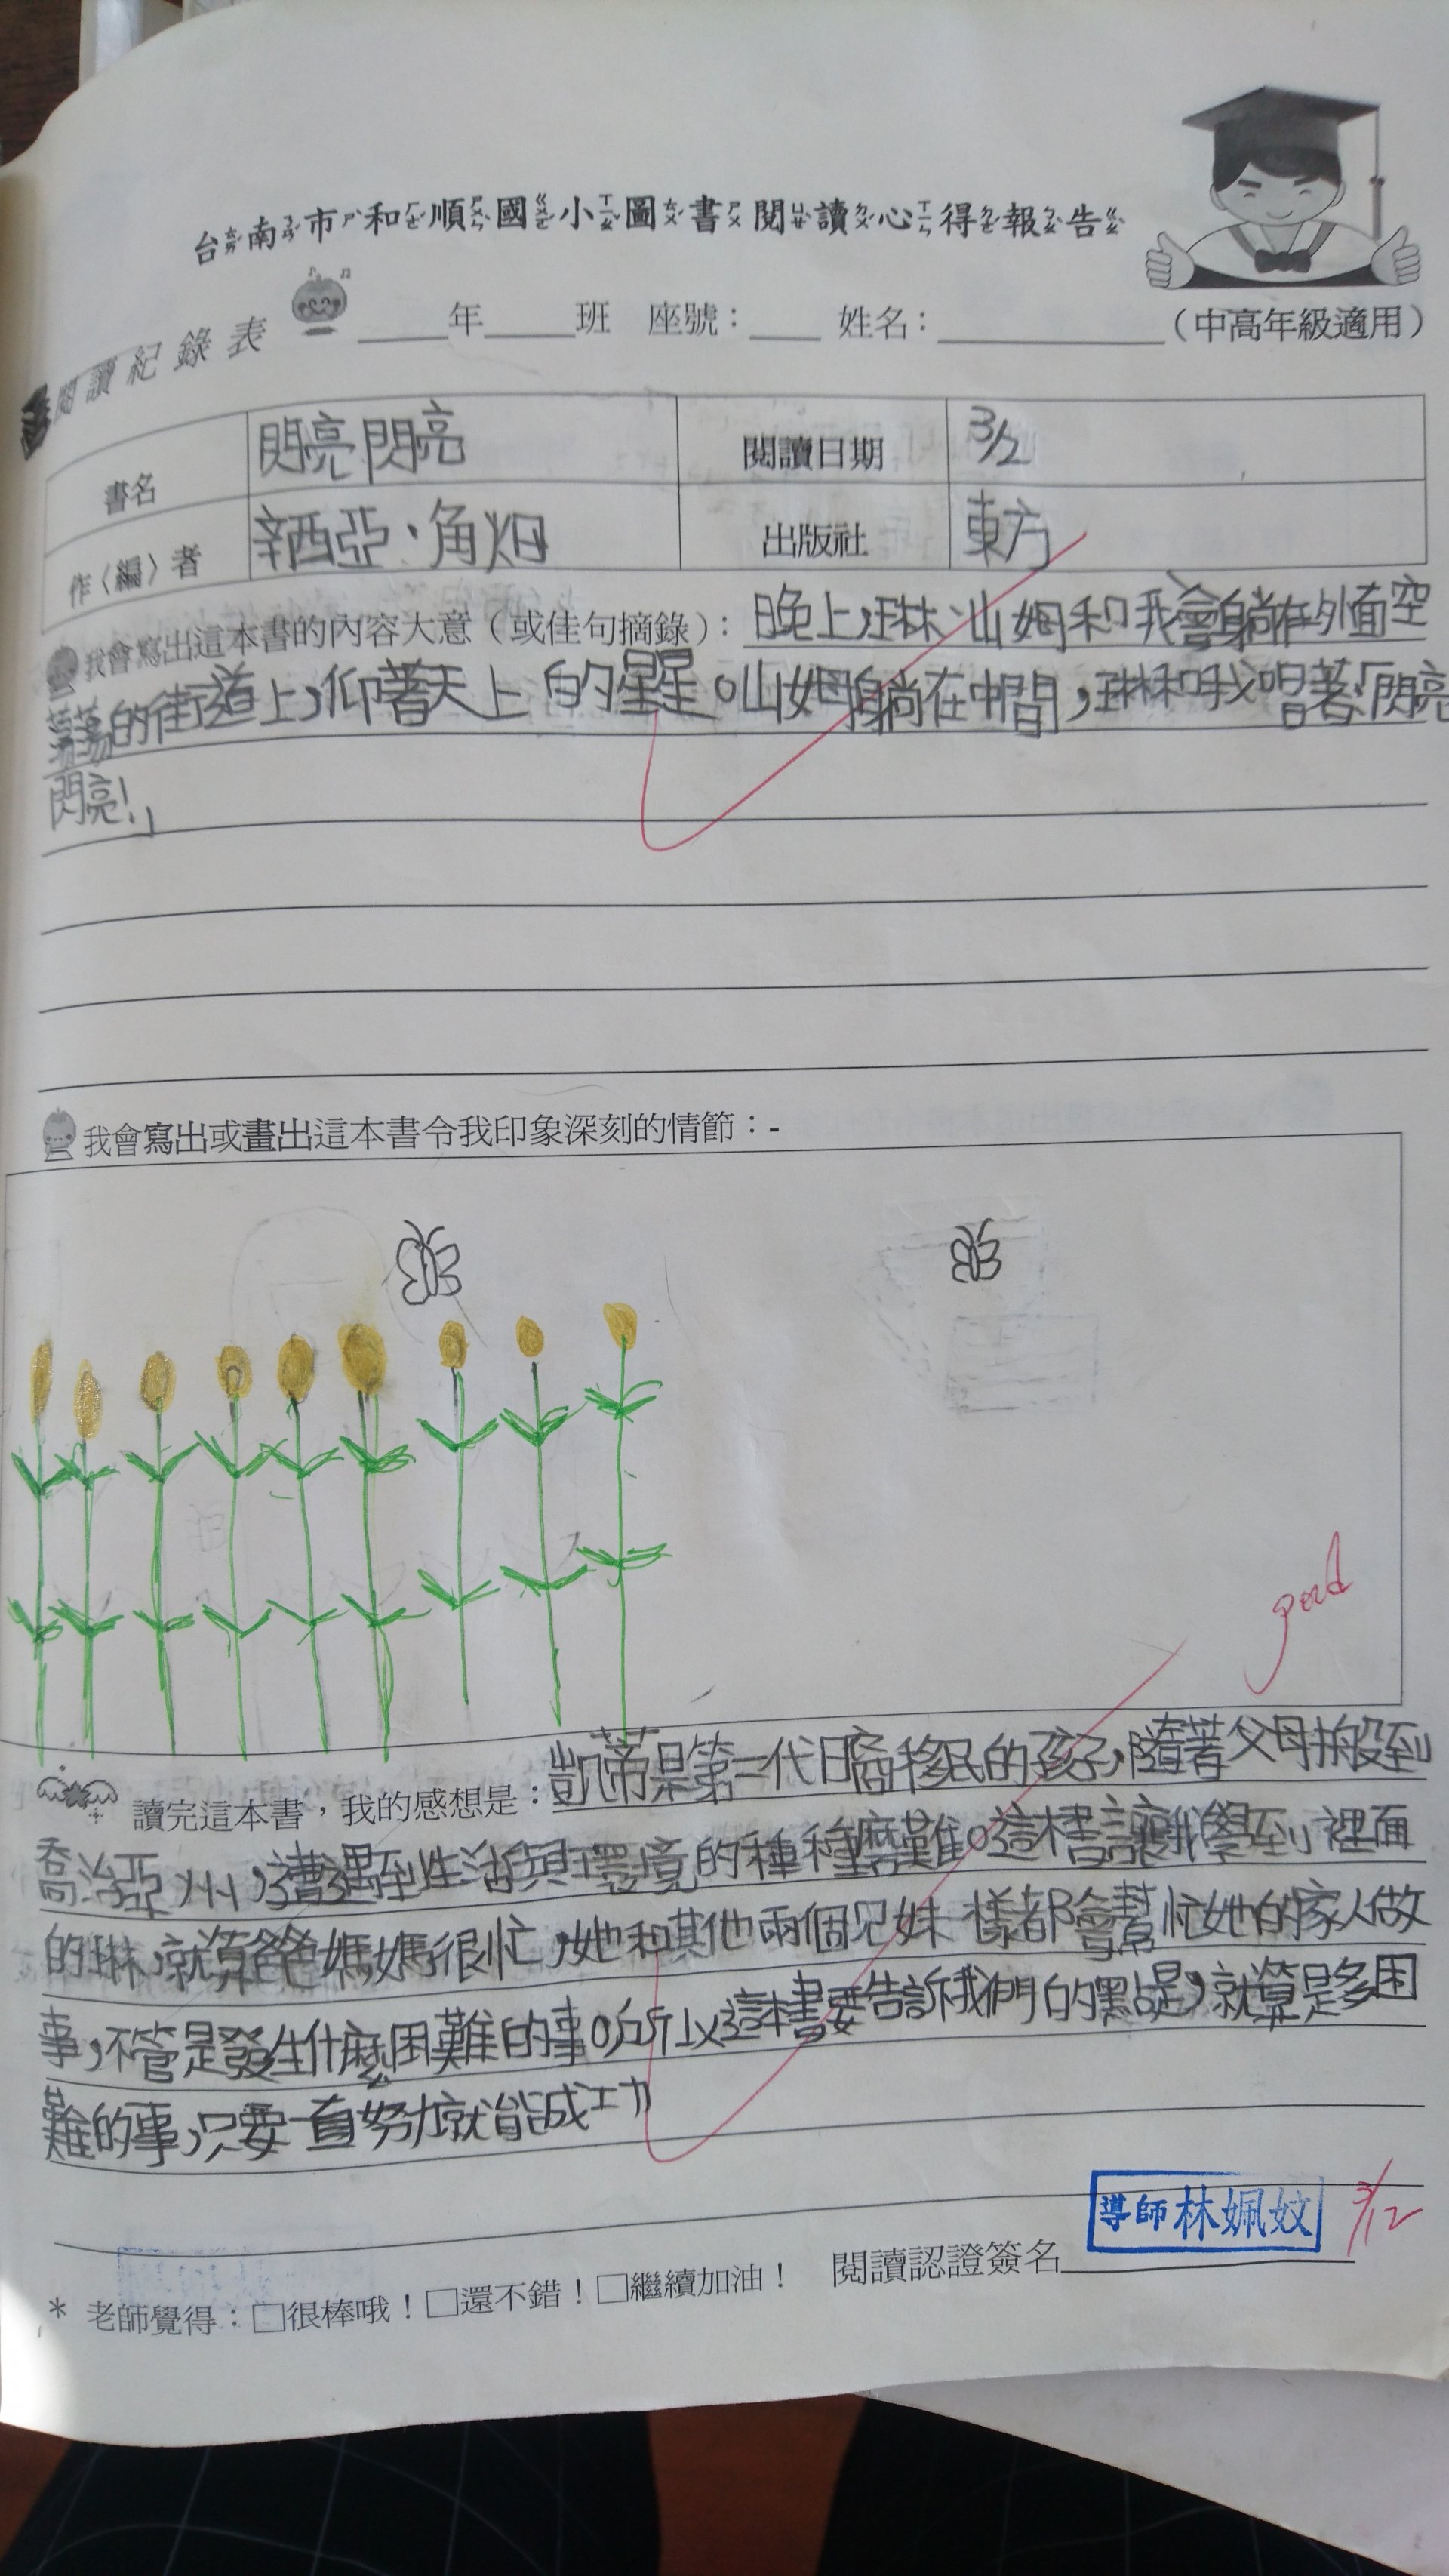 台南市和順國小圖書閱讀心得報告
閱讀紀錄表 ____年____班 座號：___ 姓名：__________（中高年級適用）
書名 閃亮閃亮 閱讀日期 3/2
作〈編〉者 辛西亞·角畑 出版社 東方
我會寫出這本書的內容大意（或佳句摘錄）：晚上,琳、山姆和我會躺在外面空
蕩蕩的街道上,仰著天上的星星。山姆躺在中間,琳和我唱著「閃亮
閃亮!」
我會寫出或畫出這本書令我印象深刻的情節：-
good
讀完這本書，我的感想是：凱蒂是第一代日裔移民的孩子,隨著父母搬到
喬治亞州,遭遇到生活與環境的種種磨難。這本書讓我學到裡面
的琳,就算爸爸媽媽很忙,她和其他兩個兄妹一樣都會幫忙她的家人做
事,不管是發生什麼困難的事。所以這本書要告訴我們的點是,就算是多困
難的事,只要一直努力就能成功
導師 林姵妏 3/12
* 老師覺得：□很棒哦！□還不錯！□繼續加油！ 閱讀認證簽名